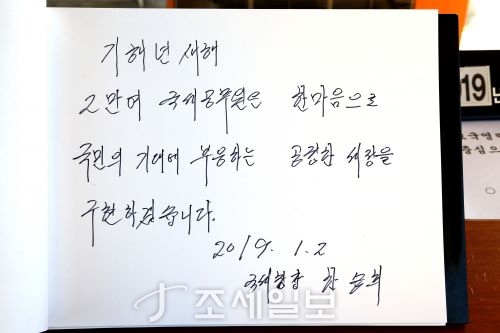 기해년 새해
2만여 국세공무원은 한마음으로
국민의 기대에 부응하는 공정한 세정을
구현하겠습니다.
2019. 1. 2
국세청장 한승희
조세일보
019년